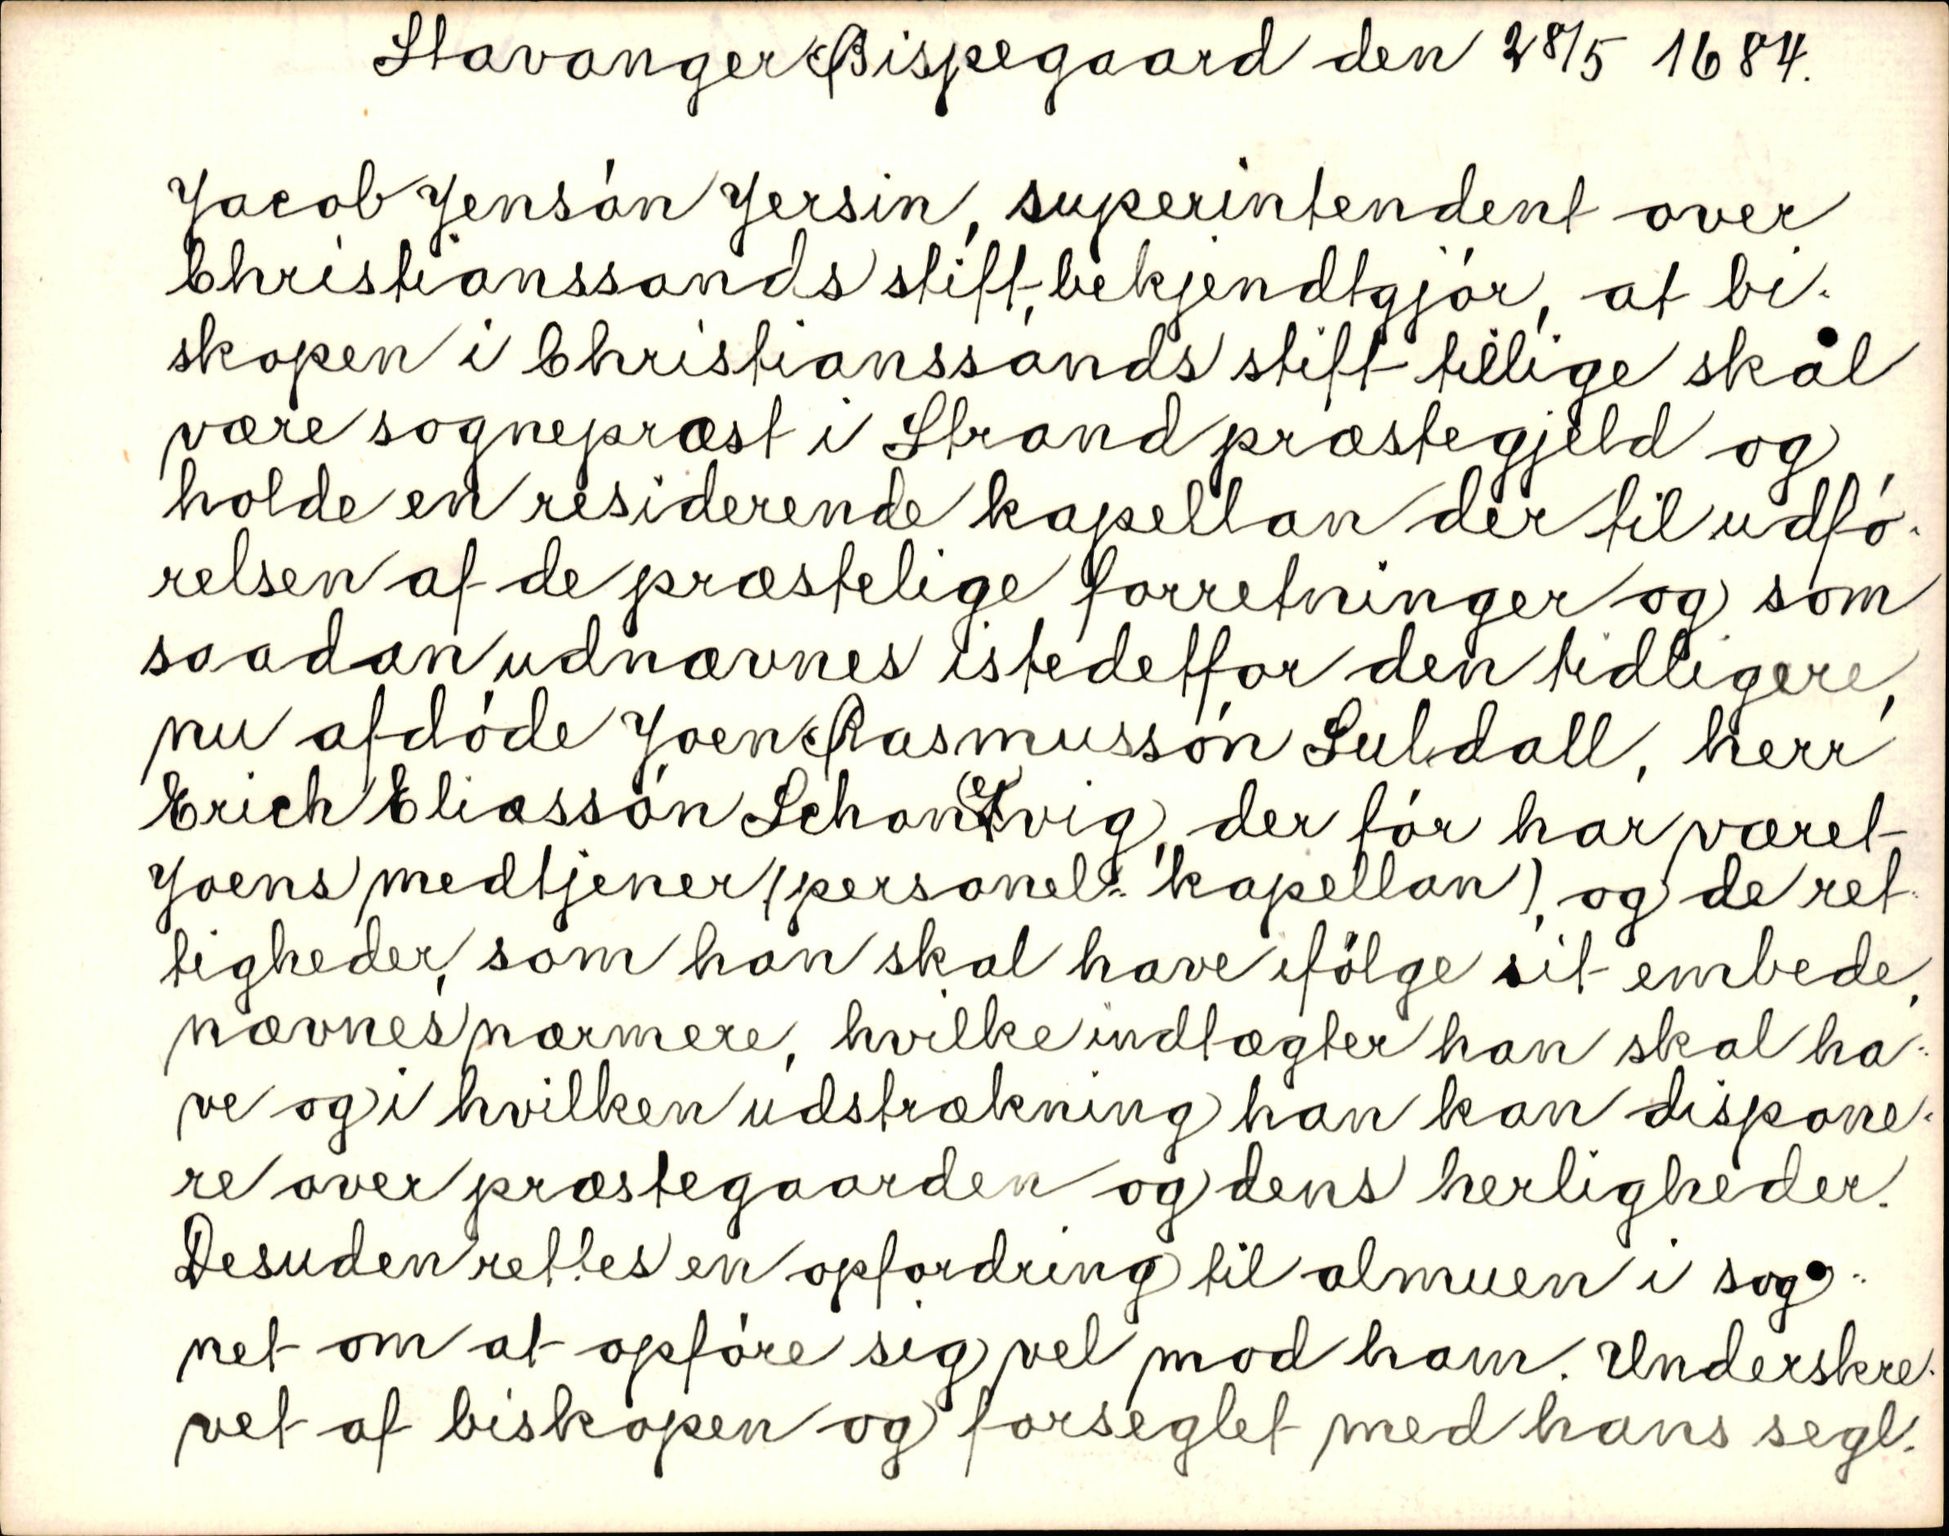 Stavanger Bispegaard den 28/5 1684.
Jacob Jensón Jersin, superintendent over
Christianssands stift, bekjendtgjór, at bi-
skopen i Christianssands stift tillige skal
være sognepræst i Strand præstegjeld og
holde en residerende kapellan der til udfó-
relsen af de præstelige forretninger og som
saadan udnævnes istedetfor den tidligere,
nu afdóde Joen Rasmussón Suldall, herr
Erich Eliassón Schon vig, der fór har været
Joens medtjener (personel-kapellan), og de ret-
tigheder, som han skal have ifölge sit embede,
nævnes nærmere, hvilke indtægter han skal ha-
ve og i hvilken udstrækning han kan dispone-
re over præstegaarden og dens herligheder.
Desuden rettes en opfordring til almuen i sog-
net om at opfóre sig vel mod ham. Underskre-
vet af biskopen og forseglet med hans segl.